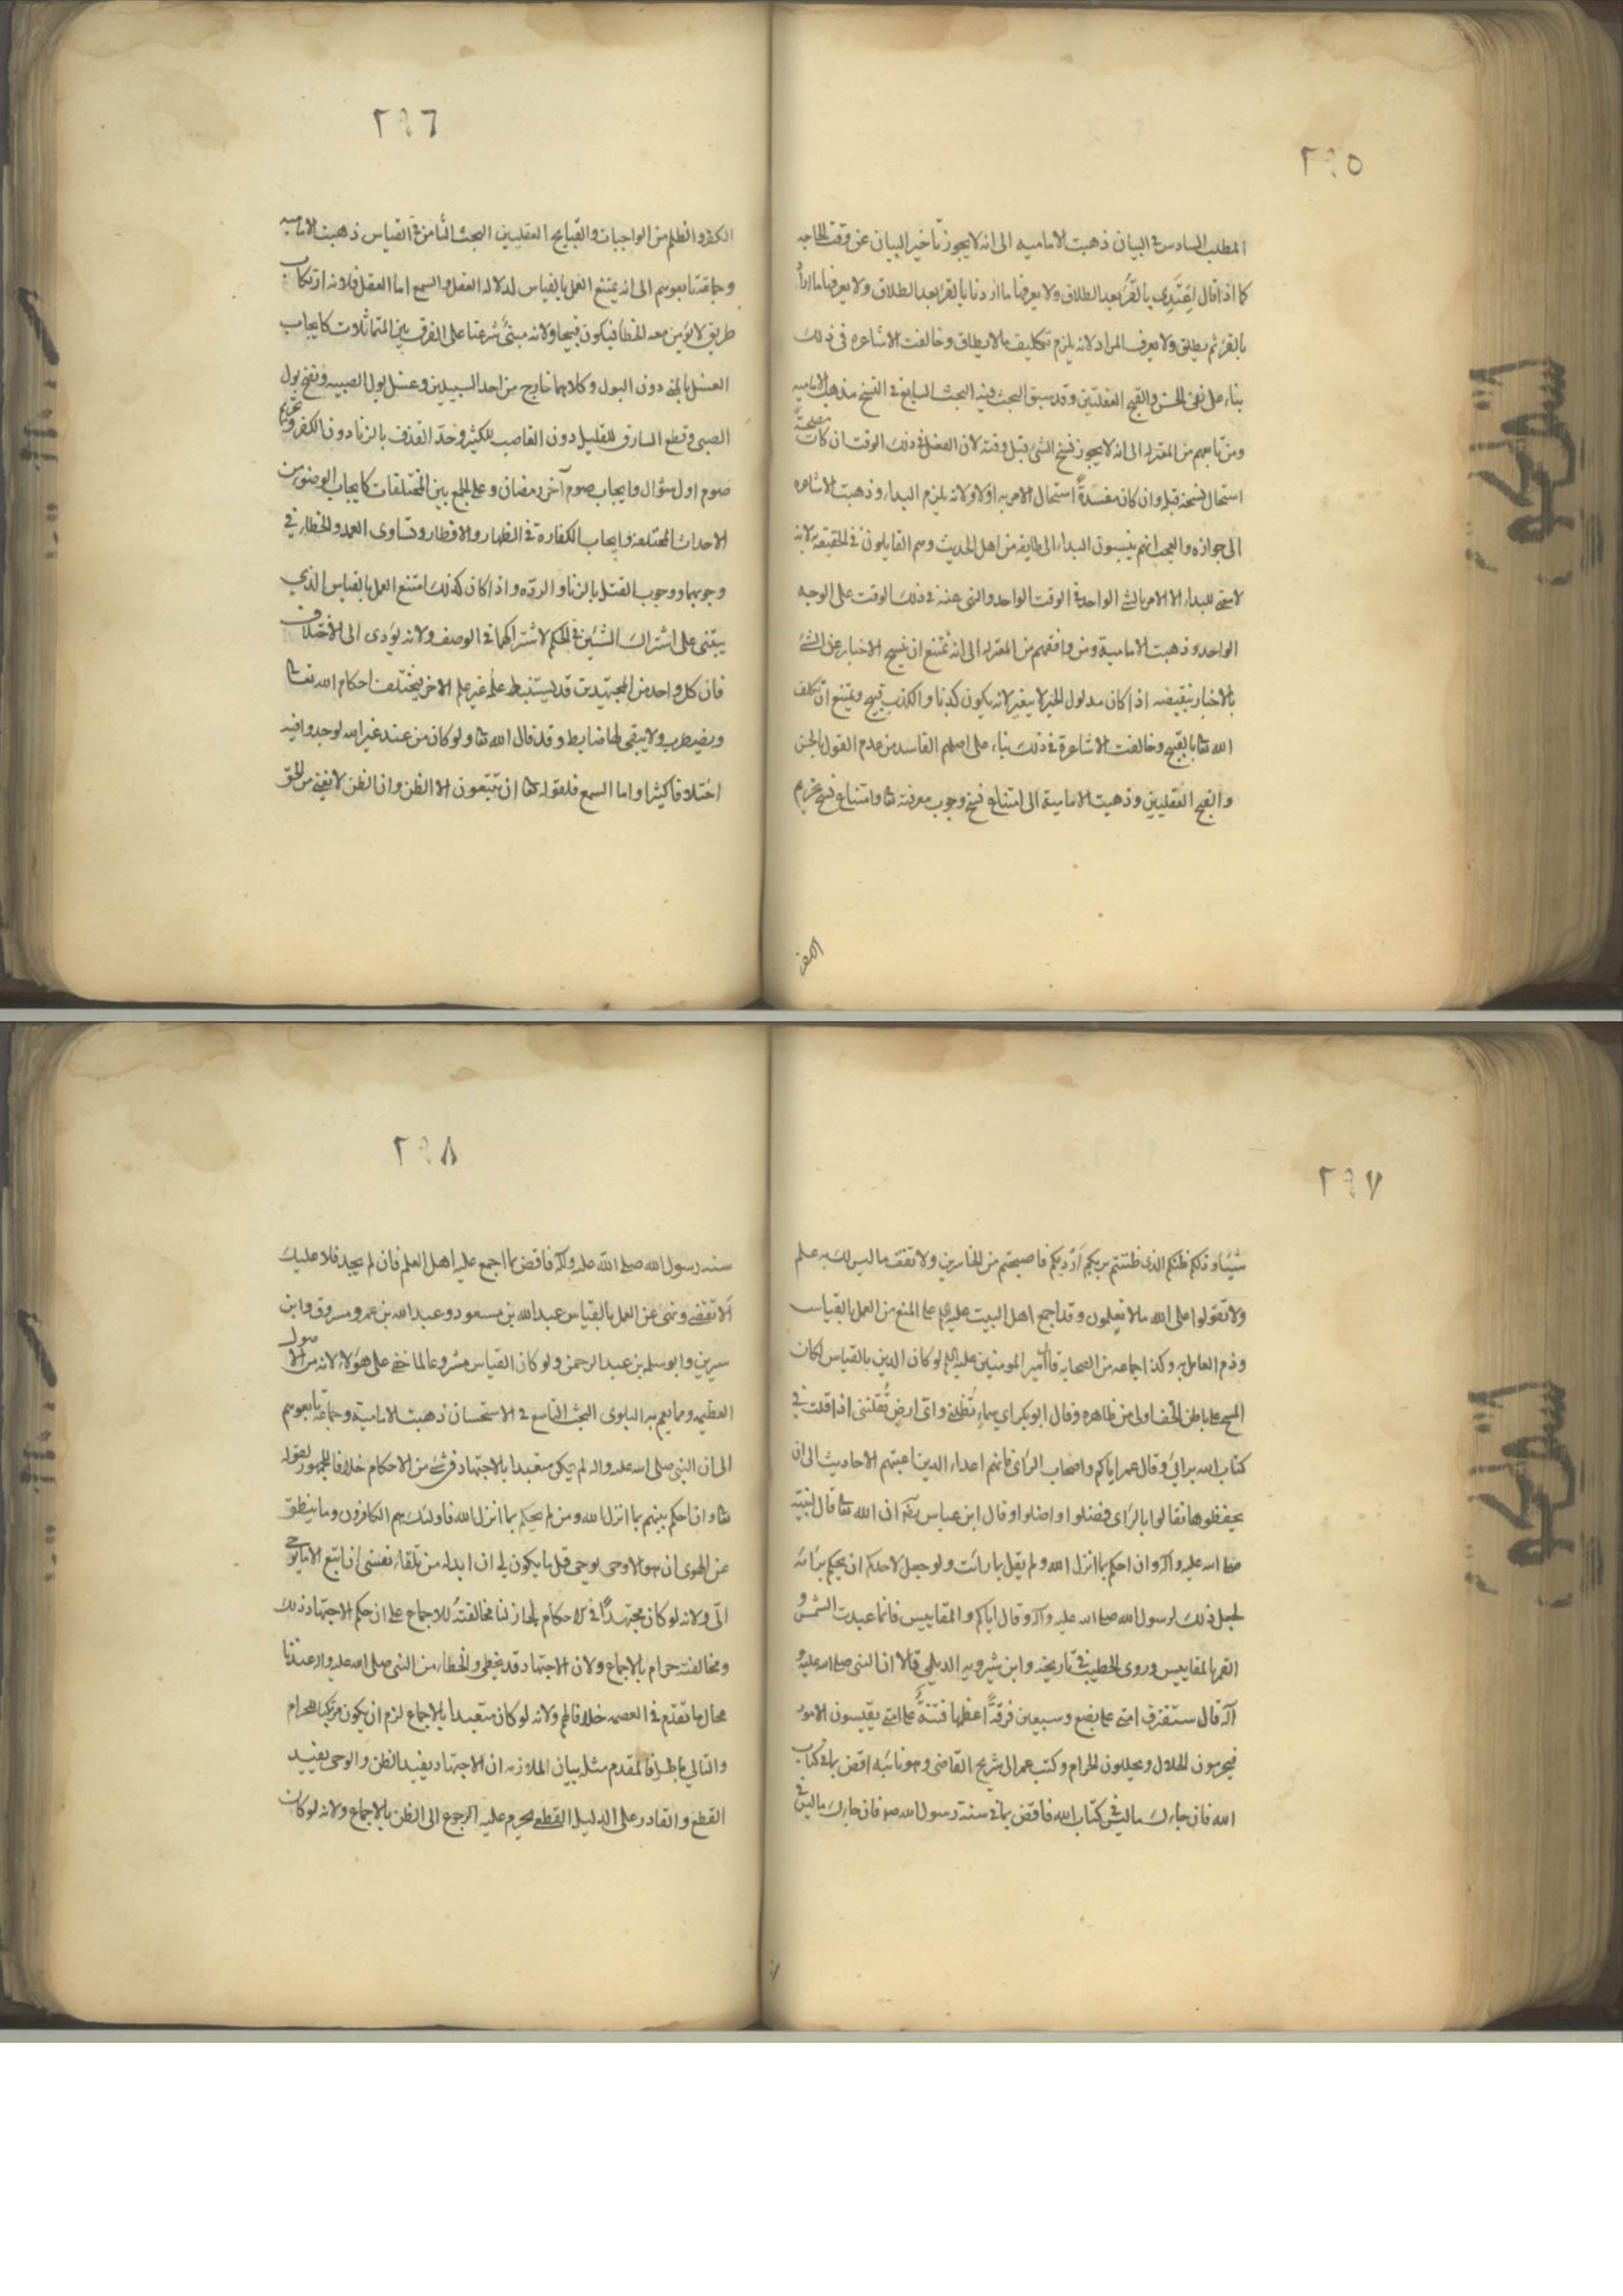 ٢٩٥
المطلب السادس فى البيان ذهبت الاماميه الى انه لا يجوز تاخير البيان عن وقت الحاجه
كما اذا قال اعتدى بالقرء بعد الطلاق ولا يعرفنا ما اردنا بالقرء بعد الطلاق ولا يعرفنا ما اراد
بالقرء ثم يطلق ولا يعرف المراد لانه يلزم تكليف ما لا يطاق وخالفت الاشاعره فى ذلك
بناء على نفى الحسن والقبح العقليين وقد سبق البحث فيه البحث السابع فى النسخ مذهب الاماميه
ومن تابعهم من المعتزله الى انه لا يجوز نسخ الشئ قبل وقته لان الفعل فى ذلك الوقت ان كان مصلحة
استحال نسخه قبله وان كان مفسدةً استحال الامر به اولا ولانه يلزم البداء وذهبت الاشاعره
الى جوازه والعجب انهم ينسبون البداء الى طايفه من اهل الحديث وهم القايلون فى الحقيقه به لانه
لا معنى للبداء الا الامر بالشئ الواحد فى الوقت الواحد والنهى عنه فى ذلك الوقت على الوجه
الواحد وذهبت الامامية ومن وافقهم من المعتزله الى انه يمتنع ان نسخ الاخبار عن الشئ
بالاخبار بنقيضه اذا كان مدلول الخبر لا يتغير لانه يكون كذبا والكذب قبيح ويمتنع ان يكلف
الله تعا بالقبيح وخالفت الاشاعرة فى ذلك بناء على اصلهم الفاسد من عدم القول بالحسن
والقبح العقليين وذهبت الامامية الى امتناع نسخ وجوب معرفته تعا وامتناع نسخ تحريم
الكفر
٢٩٦
الكفر والظلم من الواجبات والقبايح العقليين البحث الثامن فى القياس ذهبت الاماميه
وجماعة تابعوهم الى انه يمتنع العمل بالقياس لدلاله العقل والسمع اما العقل فلانه ارتكاب
طريق لا يؤمن معه الخطأ فيكون قبيحا ولانه مبنىٌ شرعنا على الفرق بين المتماثلات كايجاب
الغسل بالمنى دون البول وكلاهما خارج من احد السبيلين وغسل بول الصبيه ونضح بول
الصبى وقطع السارق للقليل دون الغاصب للكثير وحد القذف بالزنا دون الكفر وتحريم
صوم اول شوال وايجاب صوم آخر رمضان وعلى الجمع بين المختلفات كايجاب الوضوء من
الاحداث المختلفة وايجاب الكفارة فى الظهار والافطار وتساوى العمد والخطاء فى
وجوبهما ووجوب القتل بالزنا والرده واذا كان كذلك امتنع العمل بالقياس الذى
يبتنى على اشتراك الشيئين فى الحكم لاشتراكهما فى الوصف ولانه يؤدى الى الاختلاف
فان كل واحد من المجتهدين قد يستنبط علة غير علة الاخر فيختلف احكام الله تعا
ويضطرب ولا يبقى لها ضابط وقد قال الله تعا ولو كان من عند غير الله لوجدوا فيه
اختلافا كثيرا واما السمع فلقوله تعا ان تتبعون الا الظن وان الظن لا يغنى من الحق
٢٩٧
شيئا وذلكم ظنكم الذى ظننتم بربكم ارديكم فاصبحتم من الخاسرين ولا تقف ما ليس لك به علم
ولا تقولوا على الله ما لا تعلمون وقد اجمع اهل البيت عليهم السلم على المنع من العمل بالقياس
وذم العامل به وكذا جماعه من الصحابه قال امير المومنين عليه السلم لو كان الدين بالقياس لكان
المسح على باطن الخف اولى من ظاهره وقال ابو بكر اى سماءٍ تُظلنى واى ارضٍ تُقلنى اذا قلت فى
كتاب الله برائى وقال عمر اياكم واصحاب الراى فانهم اعداء الدين اعيتهم الاحاديث الى ان
يحفظوها فقالوا بالراى فضلوا واضلوا وقال ابن عباس ان الله تعا قال لنبيه
صلى الله عليه وآله وان احكم بما انزل الله ولم يقل بما رأيت ولو جعل لاحدكم ان يحكم برأيه
لجعل ذلك لرسول الله صلى الله عليه وآله وقال اياكم والمقاييس فانما عبدت الشمس و
القمر بالمقاييس وروى الخطيب فى تاريخه وابن شيرويه الديلمى قالا ان النبى صلى الله عليه و
آله قال ستفترق امتى على بضع وسبعين فرقةً اعظمها فتنةً على امتى يقيسون الامور
فيحرمون الحلال ويحللون الحرام وكتب عمر الى شريح القاضى وهو نائبه اقض بما فى كتاب
الله فان جاءك ما ليس فى كتاب الله فاقض بما فى سنة رسول الله ص فان جاءك ما ليس فى
٢٩٨
سنه رسول الله صلى الله عليه وآله فاقض بما اجمع عليه اهل العلم فان لم يجد فلا عليك
الا تقضى ونهى عن العمل بالقياس عبدالله بن مسعود وعبدالله بن عمر ومسروق وابن
سيرين وابو سلمه بن عبدالرحمن ولو كان القياس مشروعا لما خفى على هؤلاء لانه من الاصول
العظيمه ومما يعم به البلوى البحث التاسع فى الاستحسان ذهبت الامامية وجماعة تابعوهم
الى ان النبى صلى الله عليه واله لم يكن متعبدا بالاجتهاد فى شئ من الاحكام خلافا للجمهور لقوله
تعا وان احكم بينهم بما انزل الله ومن لم يحكم بما انزل الله فاولئك هم الكافرون وما ينطق
عن الهوى ان هو الا وحى يوحى قل ما يكون لى ان ابدله من تلقاء نفسى ان اتبع الا ما يوحى
الىّ ولانه لو كان مجتهداً فى الاحكام لجاز لنا مخالفتهُ للاجماع على ان حكم الاجتهاد ذلك
ومخالفته حرام بالاجماع ولان الاجتهاد قد يخطى والخطاء من النبى صلى الله عليه واله عندنا
محال ما تقدم فى العصمه خلافا لهم ولانه لو كان متعبدا بالاجماع لزم ان يكون مرتكبا للحرام
والتالى باطل فالمقدم مثله بيان الملازمه ان الاجتهاد يفيد الظن والوحى يفيد
القطع والقادر على الدليل القطعى يحرم عليه الرجوع الى الظن بالاجماع ولانه لو كان